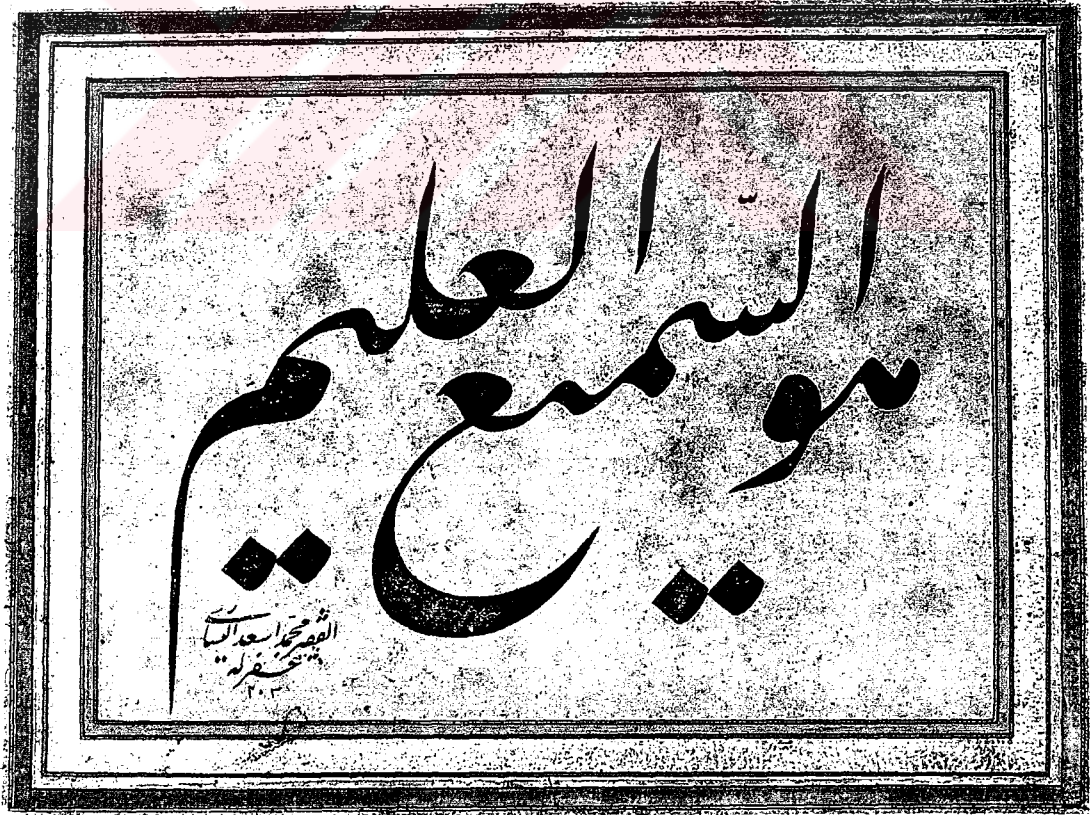 هو السّميع العليم
الفقير محمد اسعد اليساري
غفر له